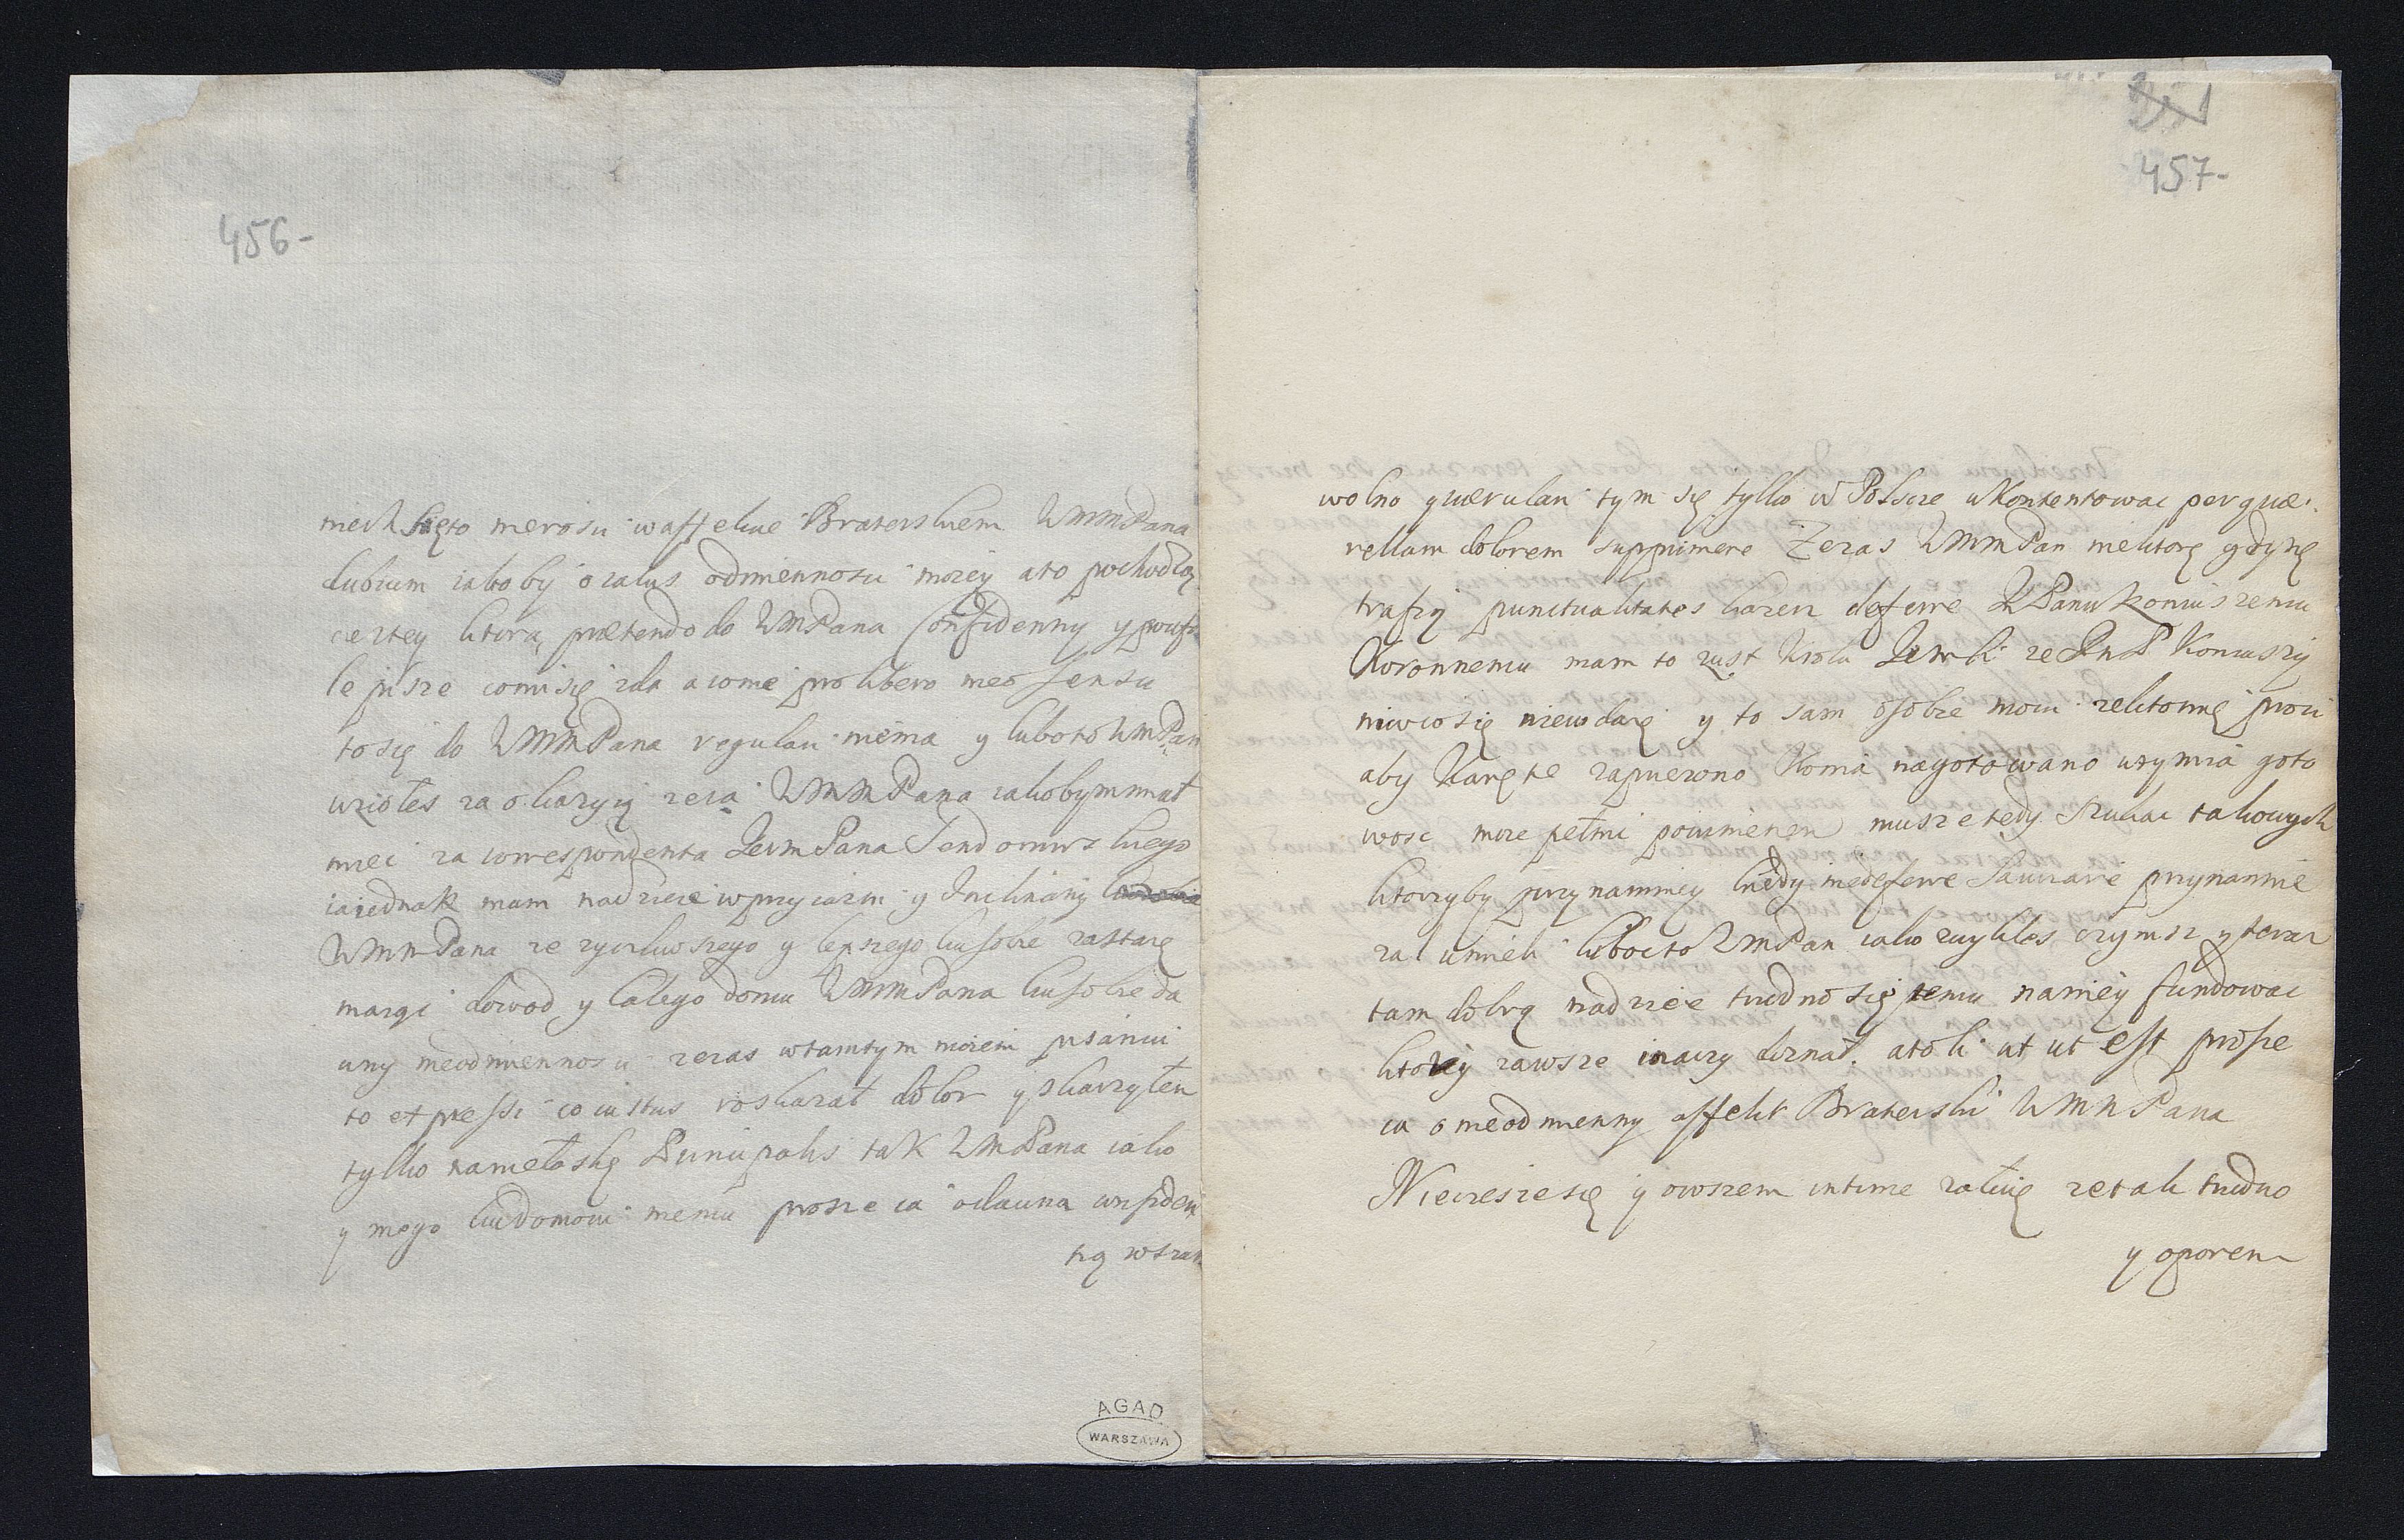 456-
niech się to nierosci w affekcie Braterskiem WMMPana
dubium iakoby o iakas odmiennosci moiey a to pochodzą
ze ztey ktorą prætendo do WMPana Confidenny y poufa
le pisze co mi się zda a co me pro libero meo sensu
to się do WMMPana regulari niema y lubo to WMPan
wziołes za okazyą zeia WMMPana iakobym miał
miec za correspondenta JeimPana Sendomirskiego
ia iednak mam nadzieie w przyiazni y Inclinany
WMMPana ze zyczliwszego y lepszego ku sobie zastaie
maiąc dowod y całego domu WMMPana ku sobie da
wny nieodmiennosci zeras w tamtym moiem pisaniu
to expressi co iustus roskazał dolor y skarzyłem
tylko na niełaskę Principalis tak WMPana iako
y mego ku domowi memu prosze ia o dawna confiden
tią w sran
457-
wolno quærulari tym się tylko w Polszcze ukontentowac per quæ-
rellam dolorem supprimere Zeras WMMPan niektorę gdysię
trafiy punctualitates kazesz deferre JPanu Koniuszemu
Koronnemu mam to zust Krola Jemci ze JmP Koniuszy
niwcosię niewdaię y to sam osobie mowi zektonię prosi
aby Karętę zapuezono Konia nagotowano uczynia goto
wosc moze pełnic powinienem musze tedy szukac takowych
ktorzyby przynamniey kiedy niedeferre fawrare przynamnie
zal umieli liboc to WMPan iako zwykłes czynisz y teraz
tam dobrą nadzieie trudno się temu namiey fundowac
ktory zawsze inaczy doznał. atoli ut ut est prosze
ia o nieodmienny affekt Braterski WMMPana
Niecieszesię y owszem intime załuię ze tak trudno
y oporem
AGAD
WARSZAWA